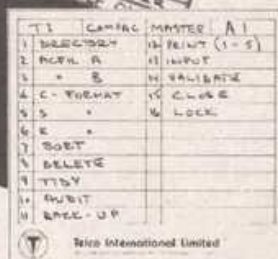 TI COMPAC MASTER A1
1 DIRECTORY 12 PRINT (1-5)
2 ACFIL A 13 INPUT
3 " B 14 VALIDATE
4 C - FORMAT 15 CLOSE
5 S " 16 LOCK
6 R "
7 SORT
8 DELETE
9 TIDY
10 AUDIT
11 BACK-UP
T Telco International Limited